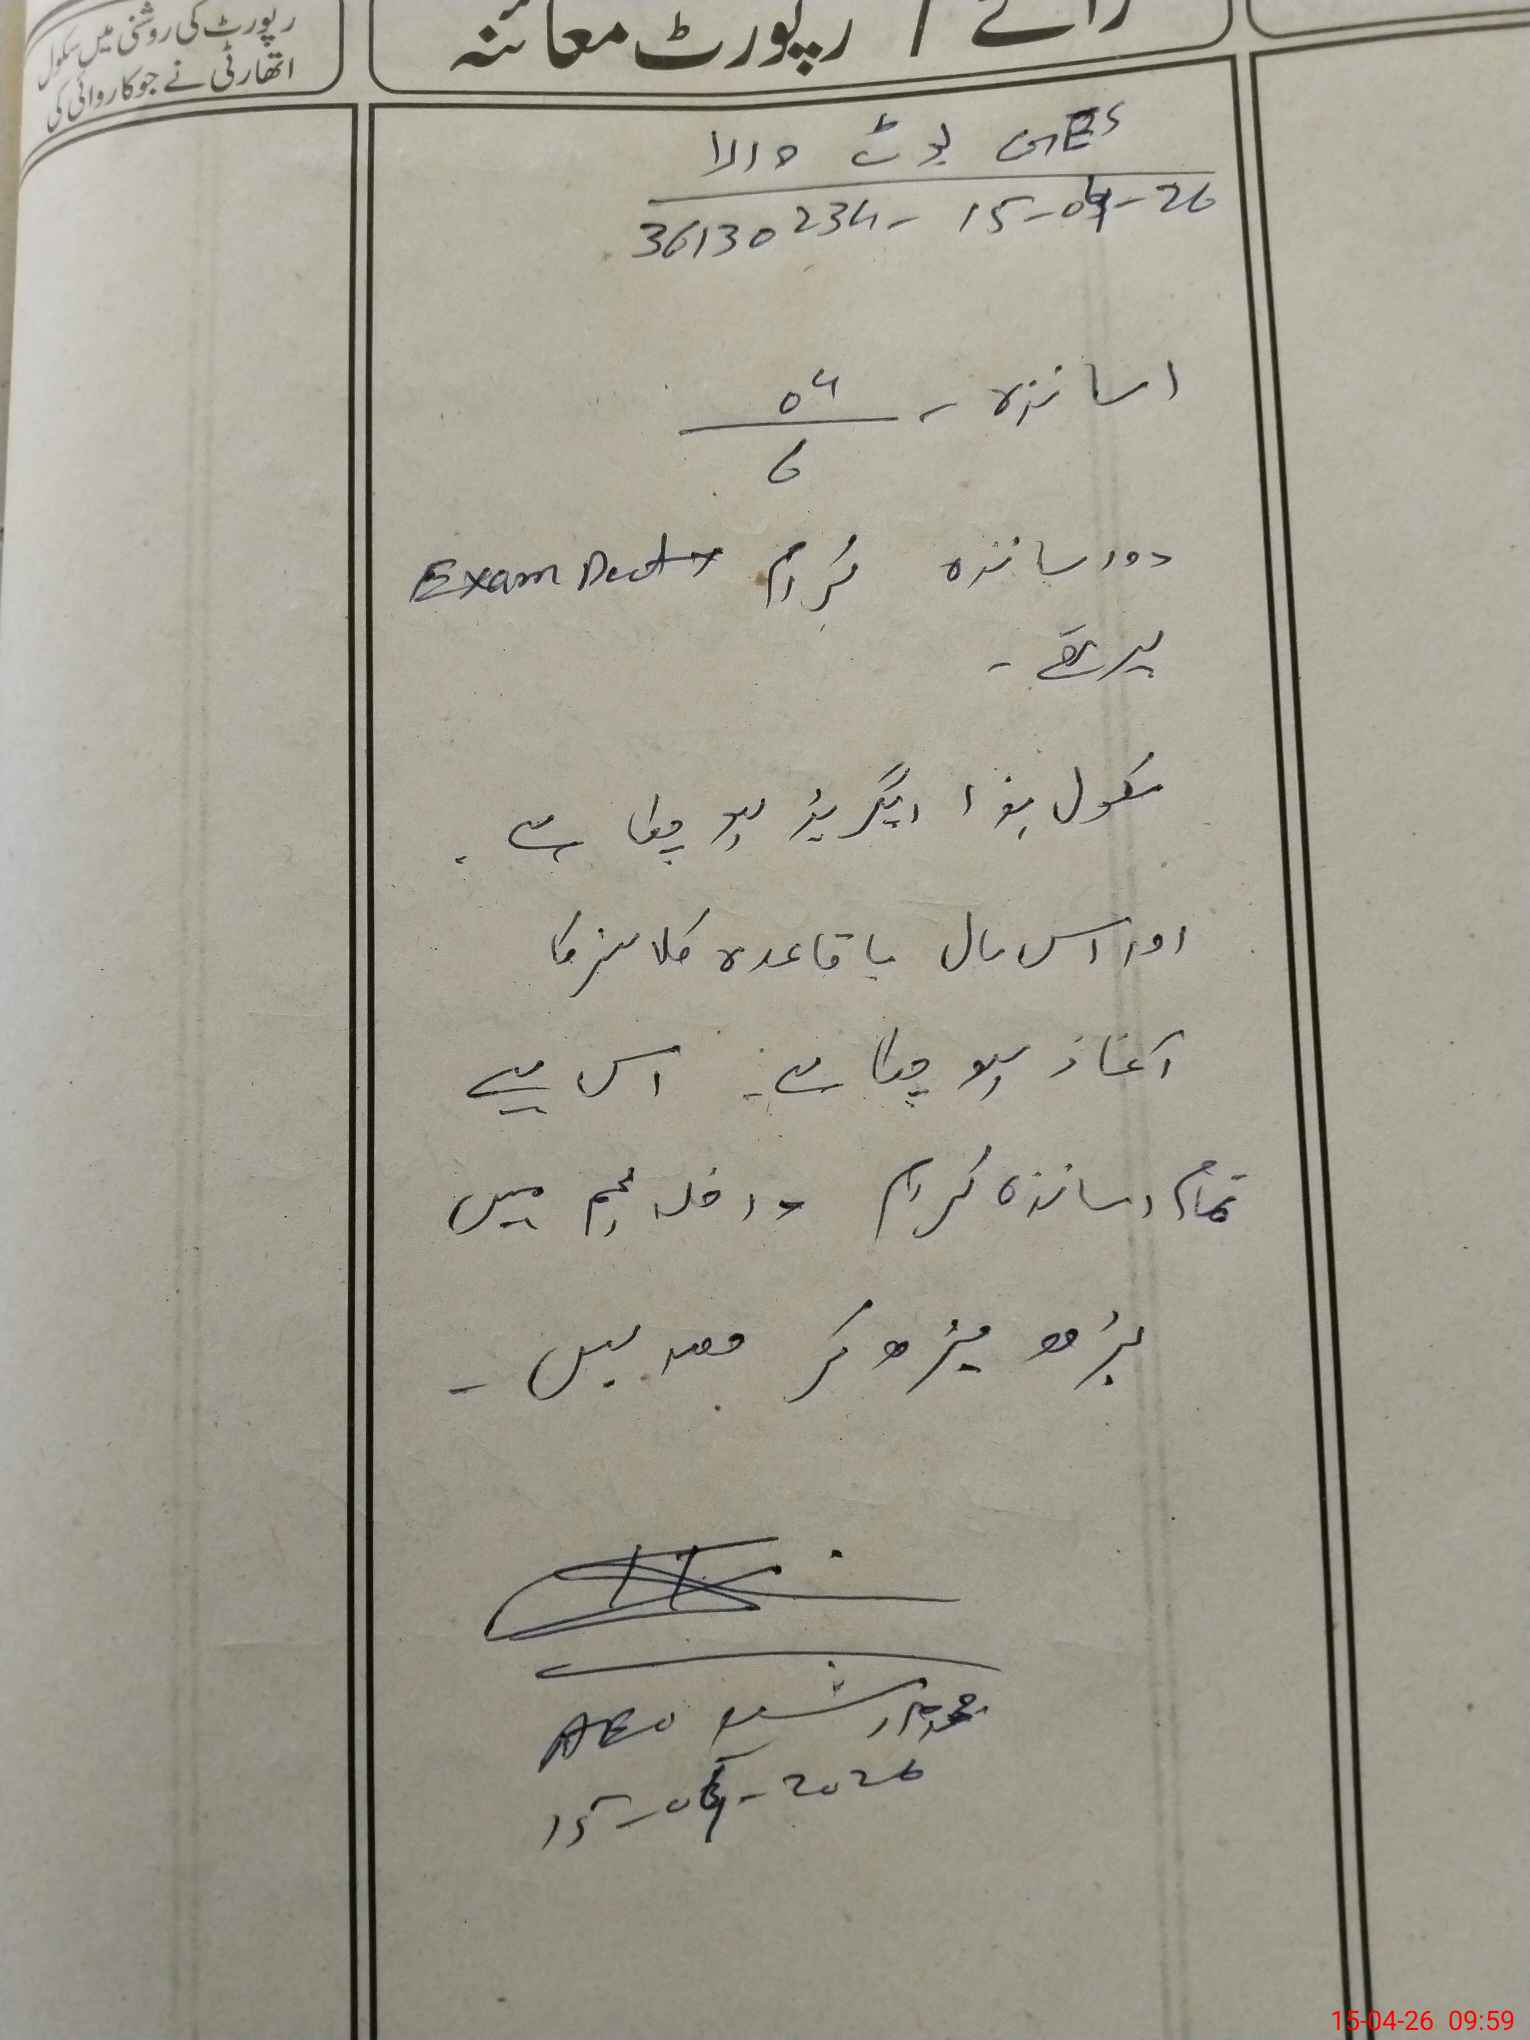 رپورٹ کی روشنی میں سکول
اتھارٹی نے جو کاروائی کی
رائے / رپورٹ معائنہ
GES بوٹ والا
36130234 - 15-04-26
اساتذہ - 04
6
دو اساتذہ کرام Exam Duty
پر تھے -
سکول ہذا اپگریڈ ہو چکا ہے -
اور اس سال باقاعدہ کلاسز کا
آغاز ہو چکا ہے - اس لیے
تمام اساتذہ کرام داخلہ مہم میں
بڑھ چڑھ کر حصہ لیں -
محمد راشد AEO
15-04-2026
15-04-26 09:59